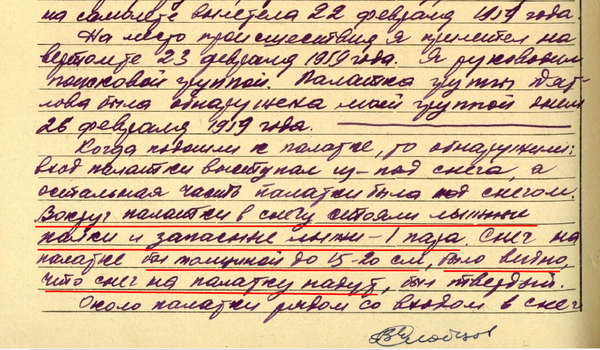 на самолете вылетела 22 февраля 1959 года.
На место происшествия я прилетел на
вертолете 23 февраля 1959 года. Я руководил
поисковой группой. Палатка группы Дят-
лова была обнаружена моей группой днем
26 февраля 1959 года.
Когда подошли к палатке, то обнаружили:
вход палатки выступал из-под снега, а
остальная часть палатки была под снегом.
Вокруг палатки в снегу стояли лыжные
палки и запасные лыжи – 1 пара. Снег на
палатке был толщиной до 15-20 см, было видно,
что снег на палатку надут, был твердый.
Около палатки рядом со входом в снег